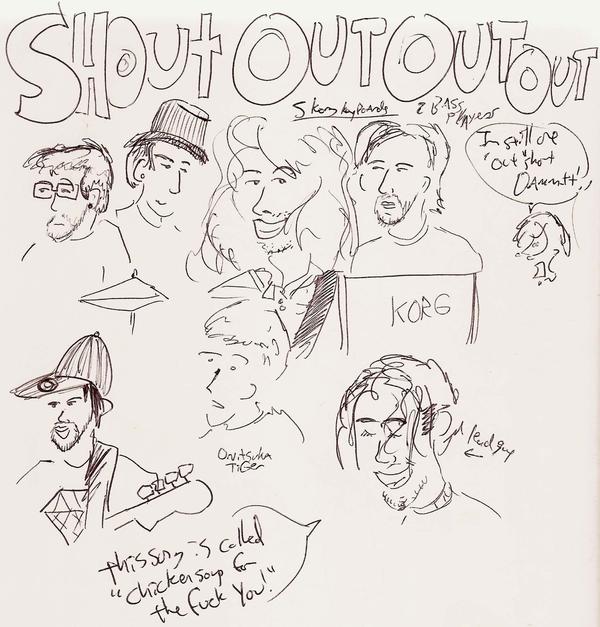 SHOUT OUT OUT OUT
5 Korg keyboards
2 BASS
Players
I'm still one
"out" short
Dammit!!
KORG
Onitsuka
TiGer
lead guy
this song is called
"chicken soup for
the fuck You!"